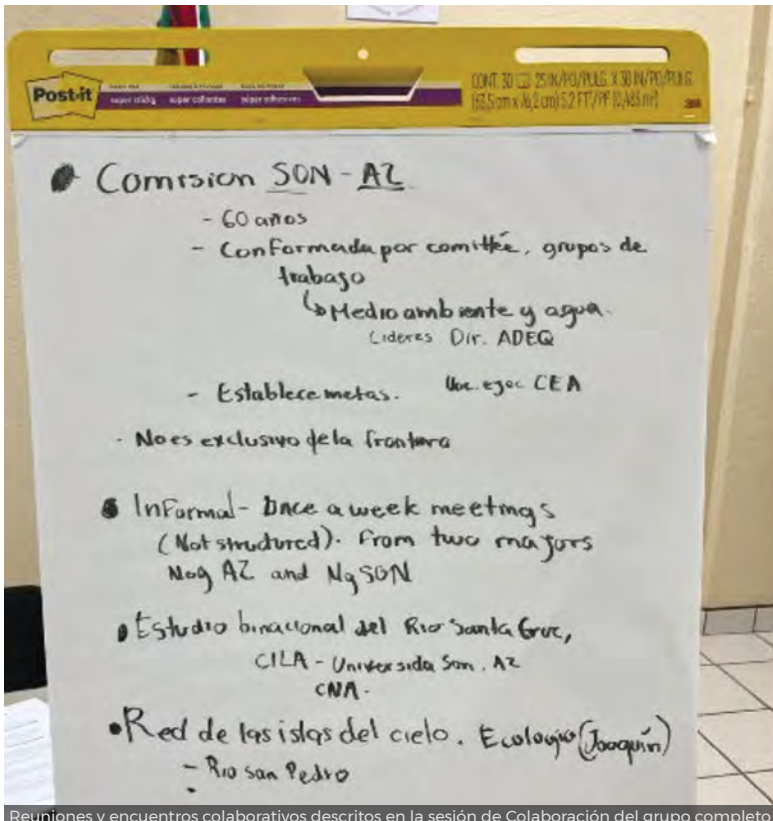 Post-it
super sticky super collantes súper adhesivas
CONT. 30 25 IN/PO/PULG. X 30 IN/PO/PULG.
(63,5 cm x 76,2 cm) 5.2 FT²/PI² (0,483 m²) 3M
• Comision SON - AZ
- 60 años
- Conformada por comittée, grupos de
trabajo
↳ Medio ambiente y agua.
Líderes Dir. ADEQ
- Establece metas. Voc. ejec CEA
- No es exclusivo de la frontera
• Informal - Once a week meetings
(Not structured). From two majors
Nog AZ and Ng SON
• Estudio binacional del Rio Santa Cruz,
CILA - Universida Son. AZ
CNA.
• Red de las islas del cielo. Ecologio (Joaquín)
- Rio san Pedro
Reuniones y encuentros colaborativos descritos en la sesión de Colaboración del grupo completo